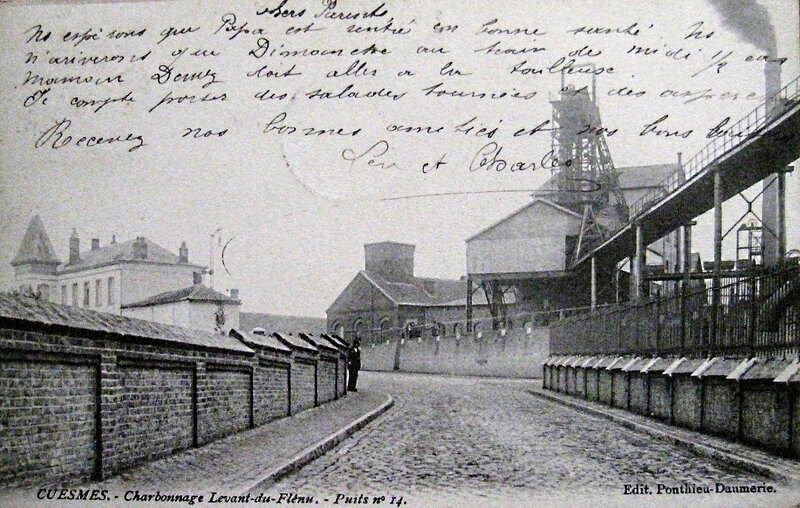 chers Parents
Ns espérons que Papa est rentré en bonne santé. Ns
n'ariverons que Dimanche au train des midi 1/2 car
Maman doit aller a la tailleuse.
Je compte porter des salades tournées et des asperges
Recevez nos bonnes amitiés et nos bons
Léu et Charles
CUESMES. - Charbonnage Levant-du-Flénu. - Puits nº 14.
Edit. Ponthieu-Daumerie.